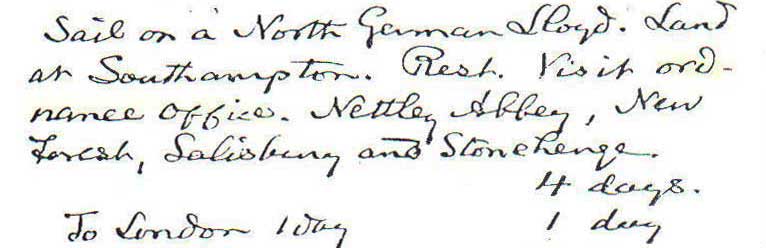 Sail on a North German Lloyd. Land
at Southampton. Rest. Visit ord-
nance office. Nettley Abbey, New
Forest, Salisbury and Stonehenge.
4 days.
To London 1 day 1 day